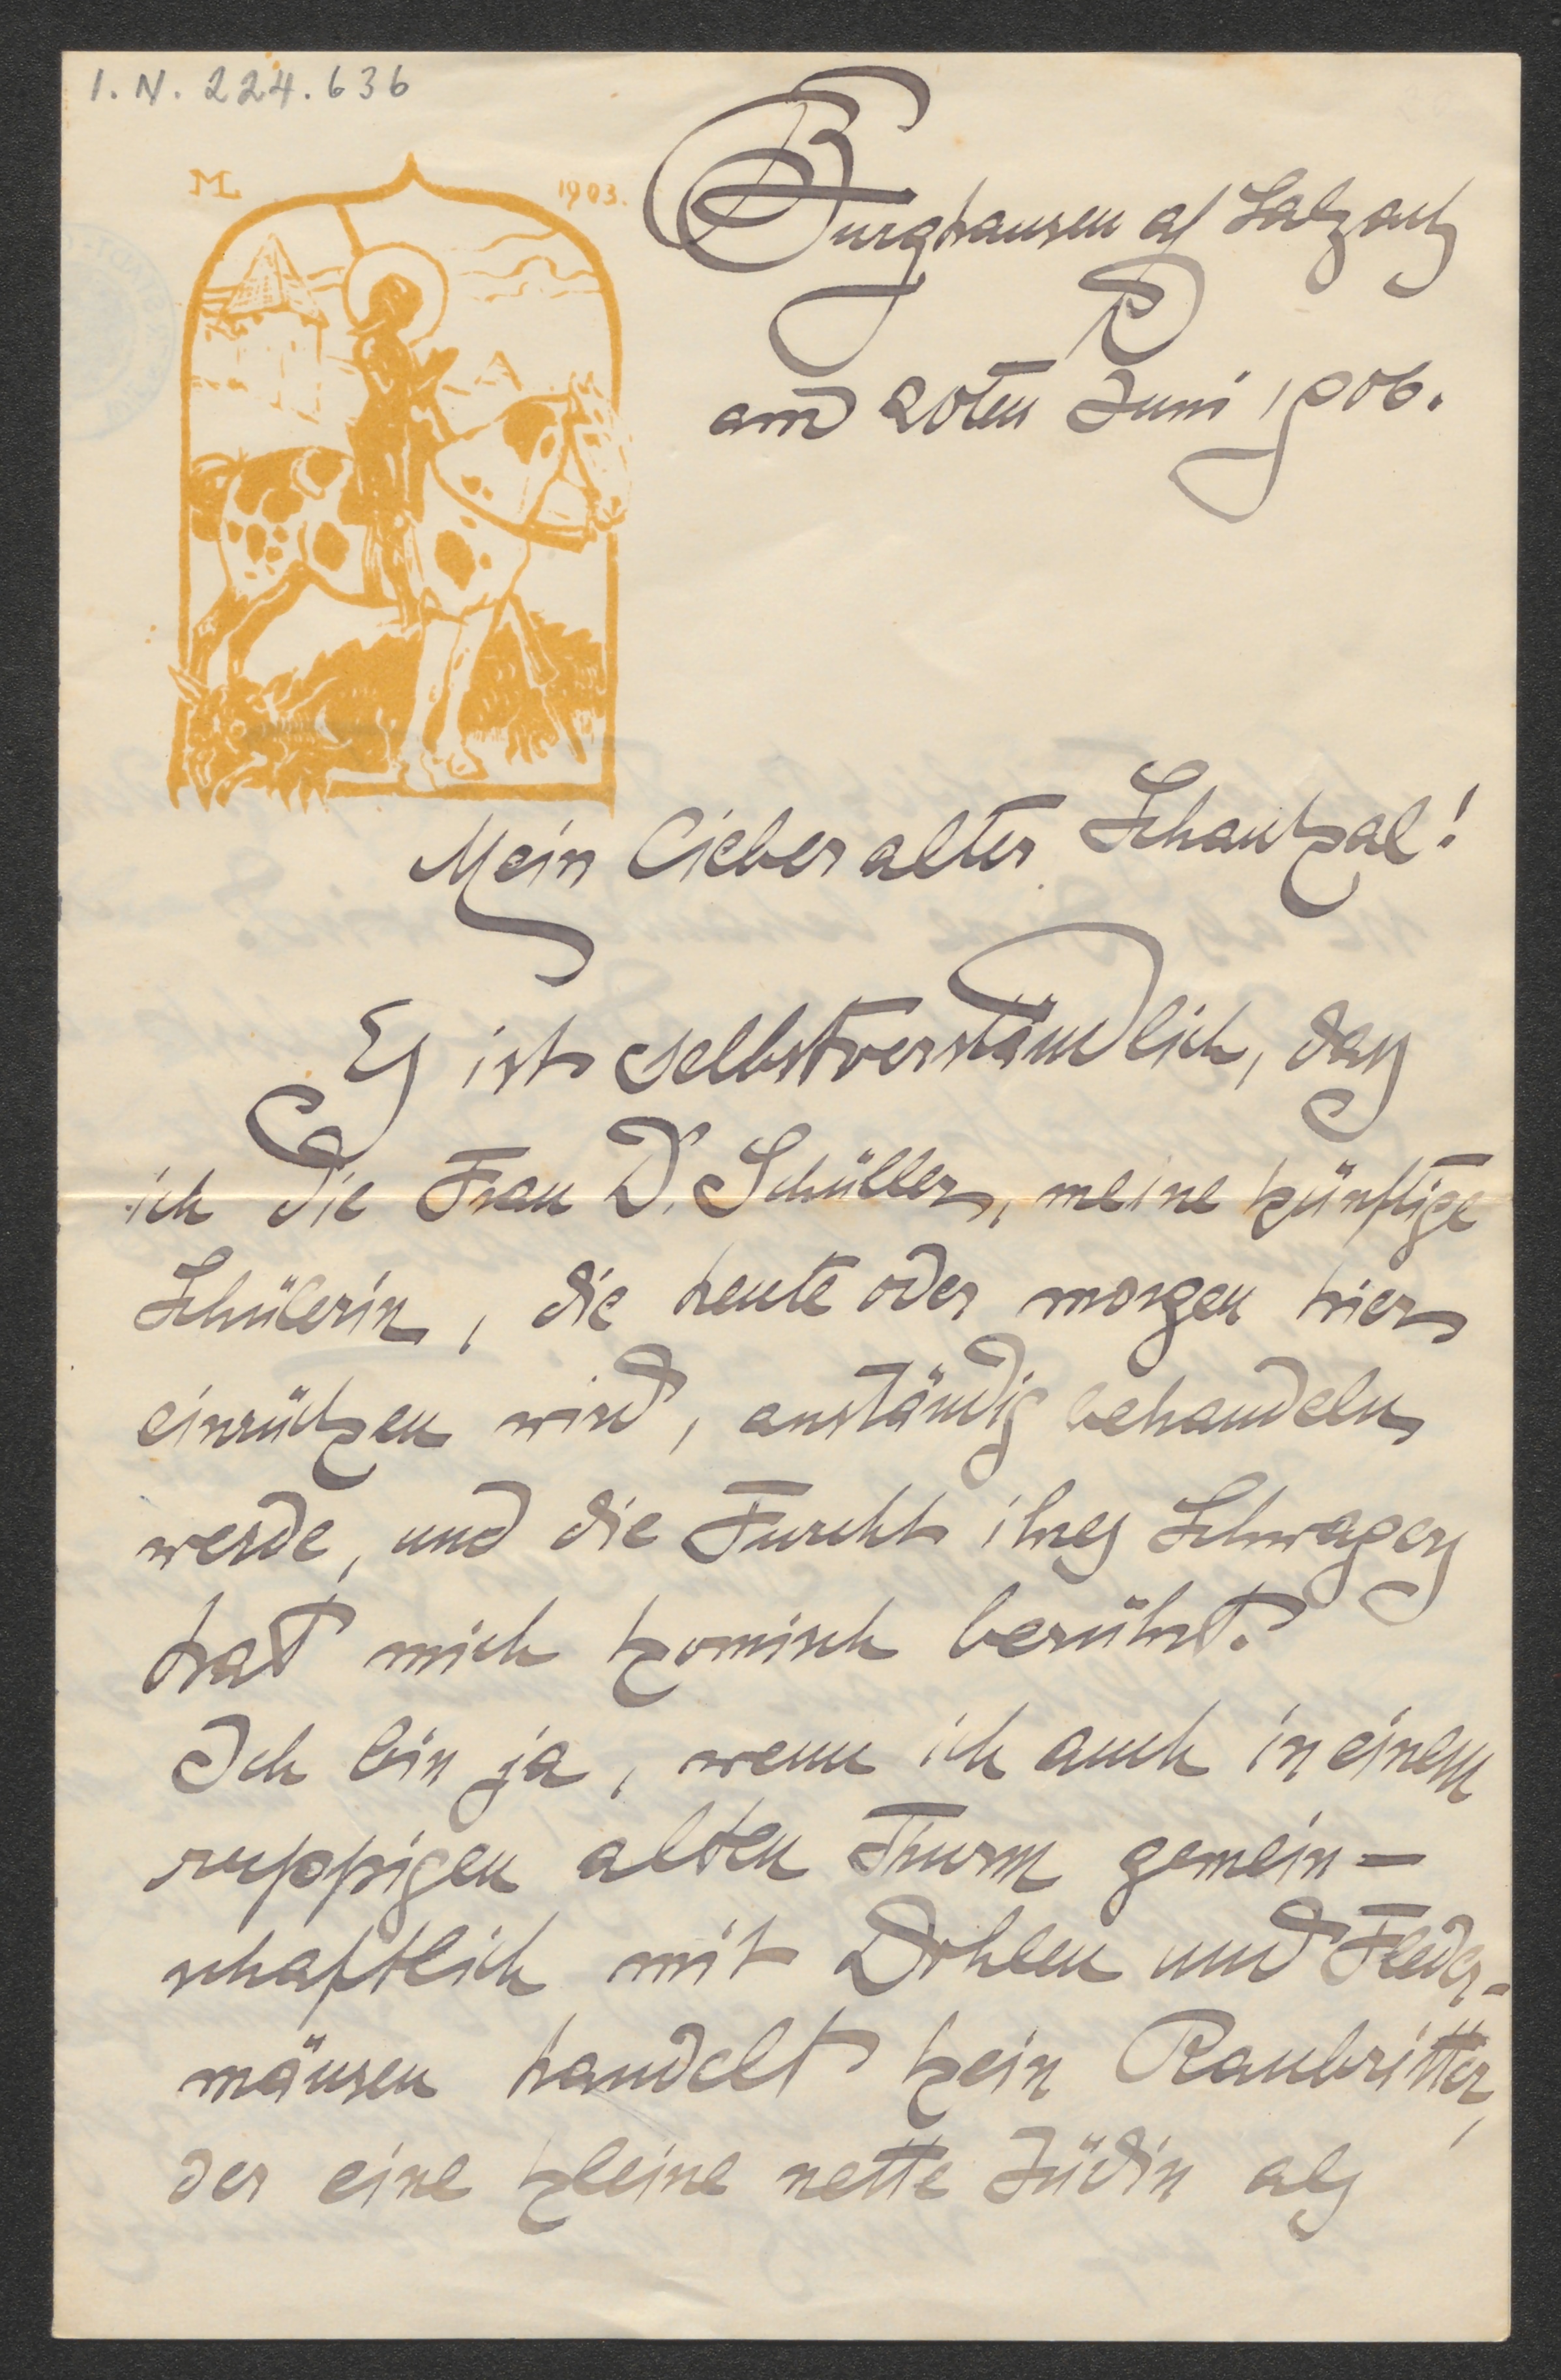 I. N. 224.636
ML 1903.
Burghausen a/ Salzach
am 20ten Juni 1906.
Mein lieber alter Schaukal!
Es ist selbstverständlich, das
ich die Frau Dr. Schüller, meine künftige
Schülerin, die heute oder morgen hier
einrücken wird, anständig behandeln
werde, und die Furcht ihres Schwagers
hat mich komisch berührt.
Ich bin ja, wenn ich auch in einem
ruppigen alten Thurm gemein-
schaftlich mit Dohlen und Fleder-
mäusen handelt kein Raubritter,
der eine kleine nette Jüdin als